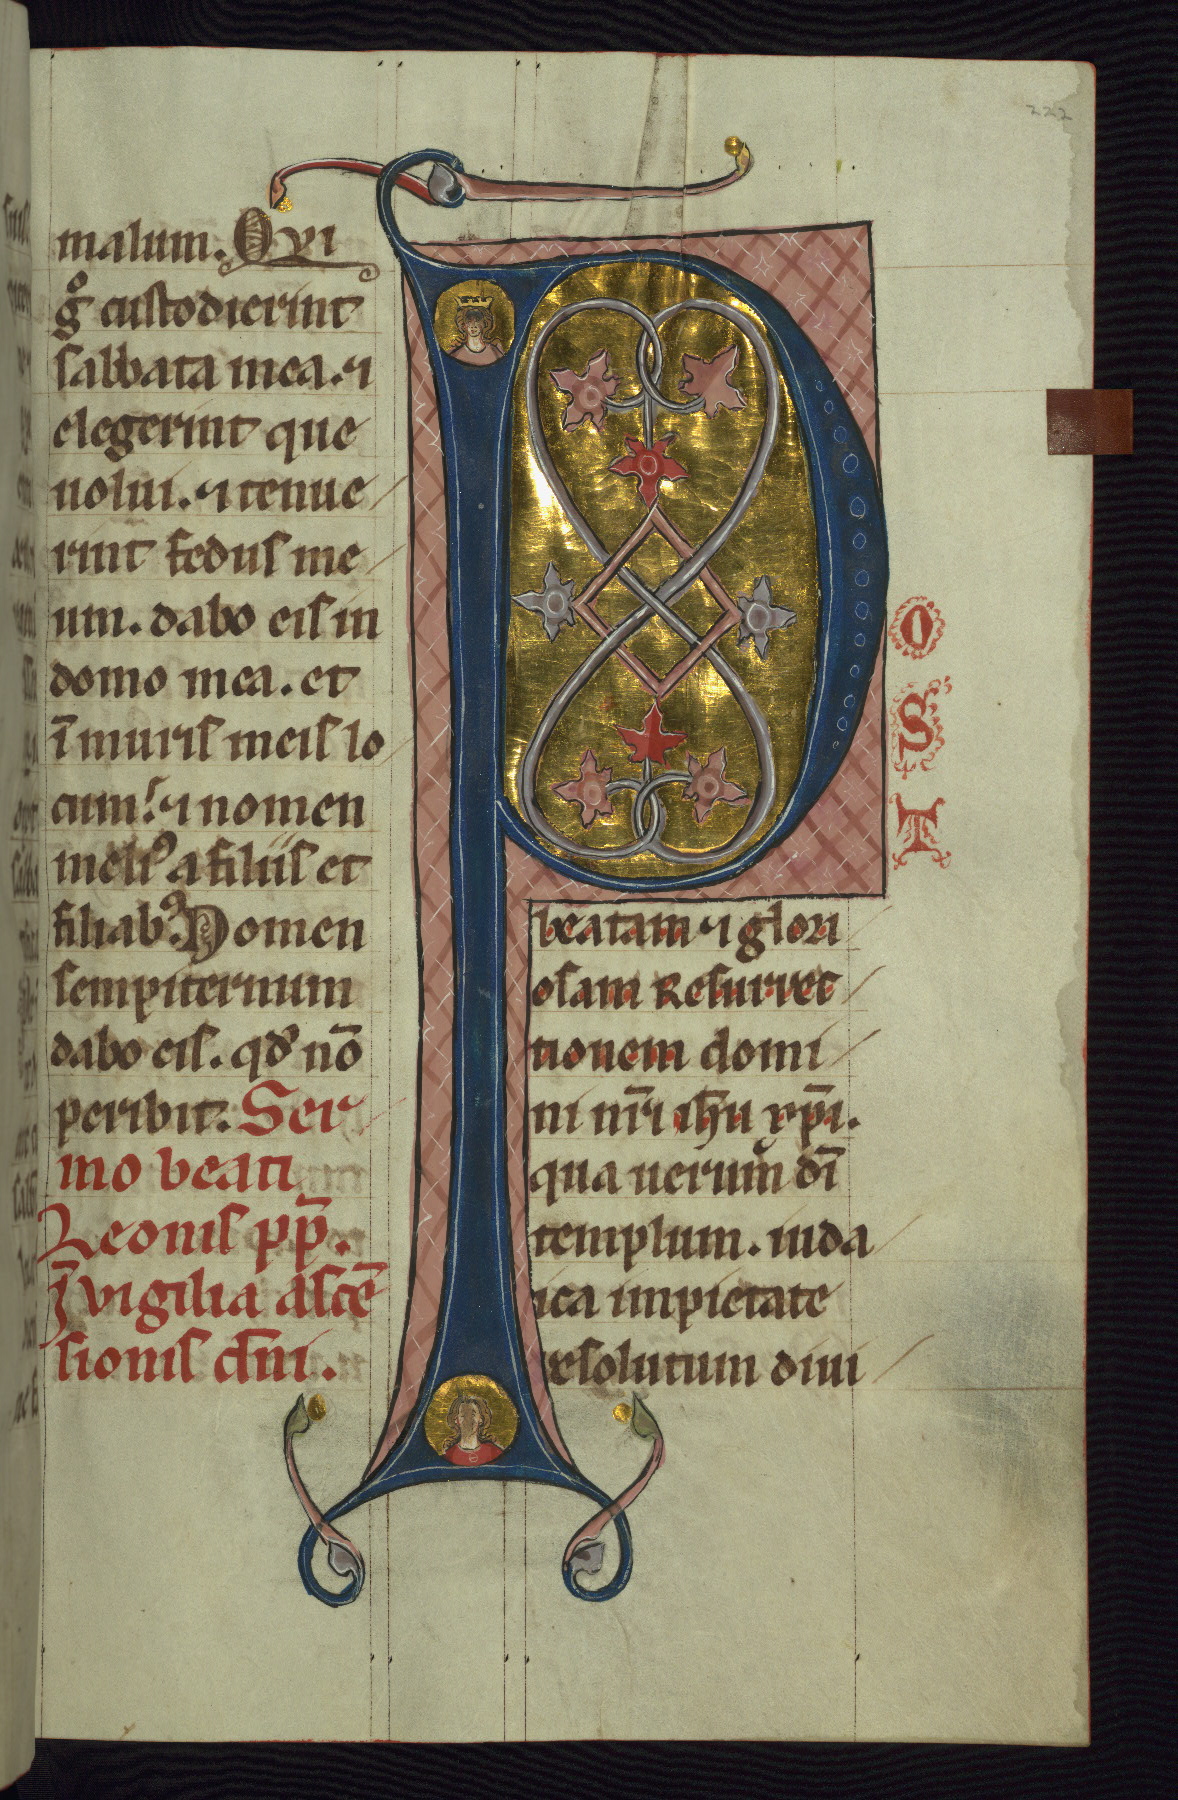 222
malum. Qvi
gͦ custodierint
sabbata mea. ⁊
elegerint que
uolui. ⁊ tenue
rint fedus me
um. dabo eis in
domo mea. et
ī muris meis lo
cum. ⁊ nomen
meliꝰ a filiis et
filiabꝰ. Nomen
sempiternum
dabo eis. qd̓ nō
peribit. Ser
mo beati
Leonis pp̄.
J̄ vigilia ascē
sionis dn̄i.
P
O
S
T
beatam ⁊ glori
osam Resurrec
tionem domi
ni nr̄i ih̄u xp̄i.
qua uerum dī
templum. iuda
ica impietate
resolutum diui